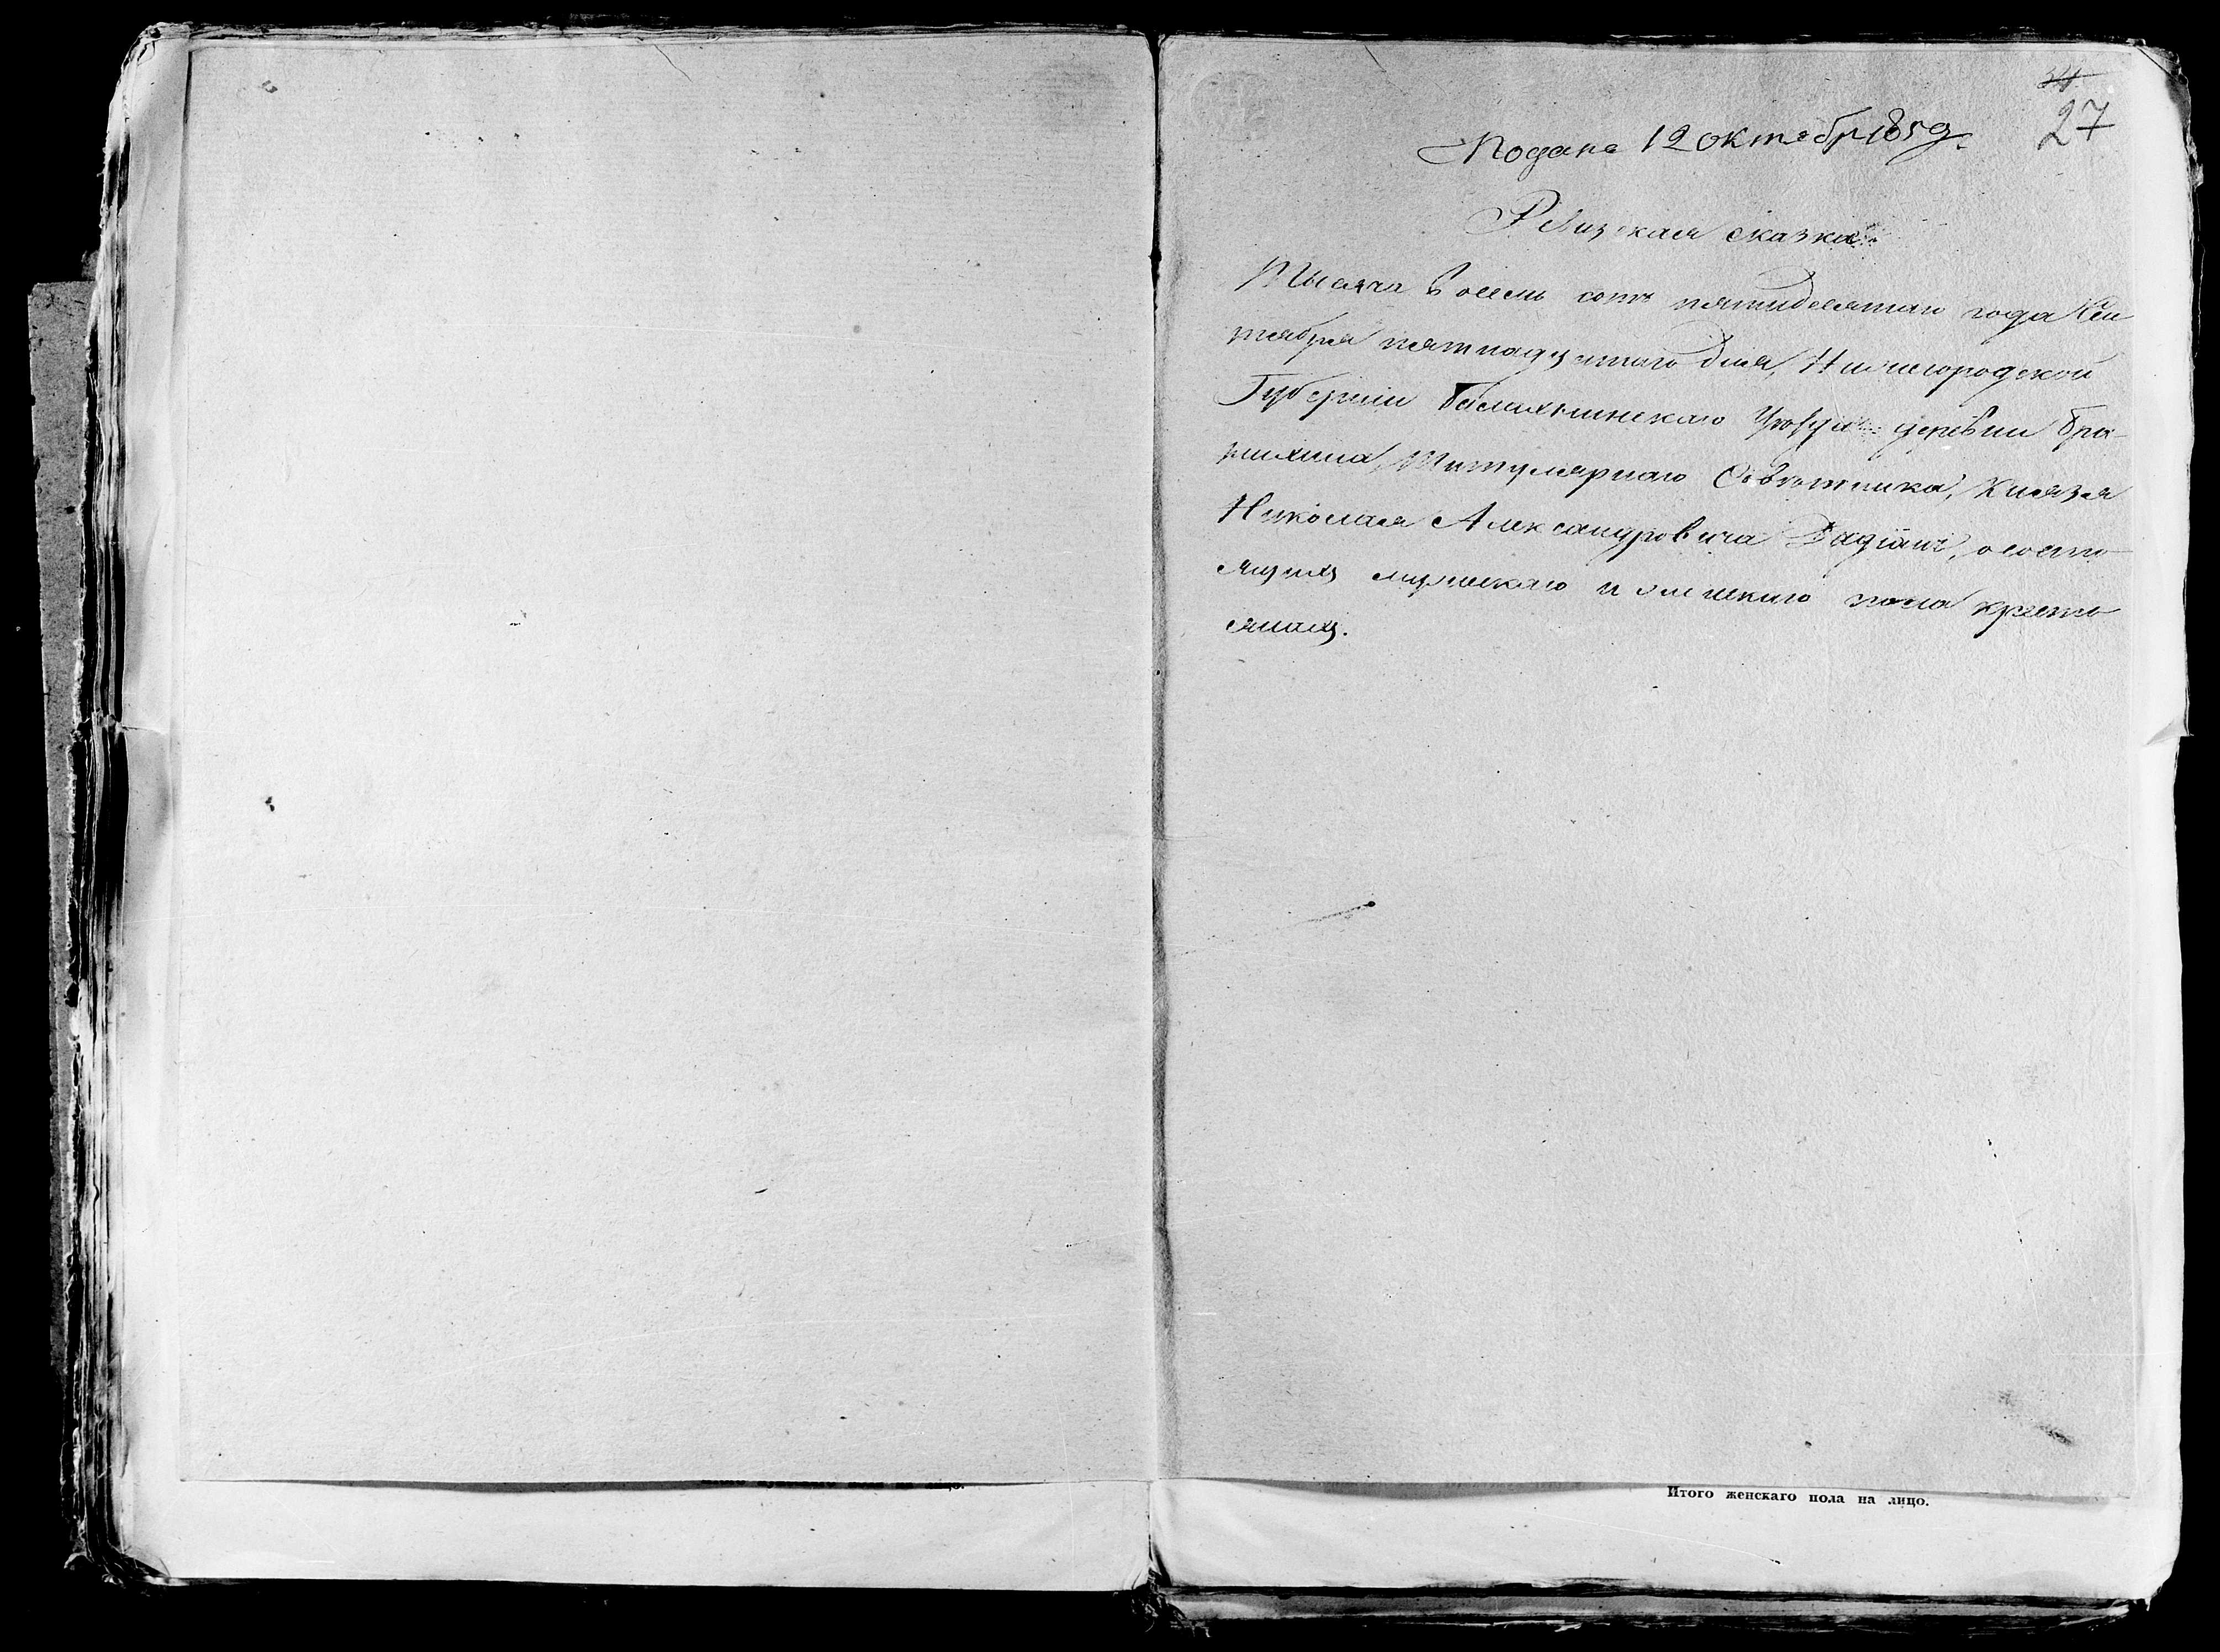 34
27
Подана 12 октябр 1850 г.
Ревизская сказка.
Тысяча восемь сотъ пятидесятаго года Сен
тября пятнадцатаго дня, Нижегородской
Губерніи Балахнинскаго Уѣзда деревни
Титулярнаго Совѣтника, Князя
Николая Александровича Дадіанъ, о состо
ящихъ мужескаго и женскаго пола кресть
янахъ.
Итого женскаго пола на лицо.